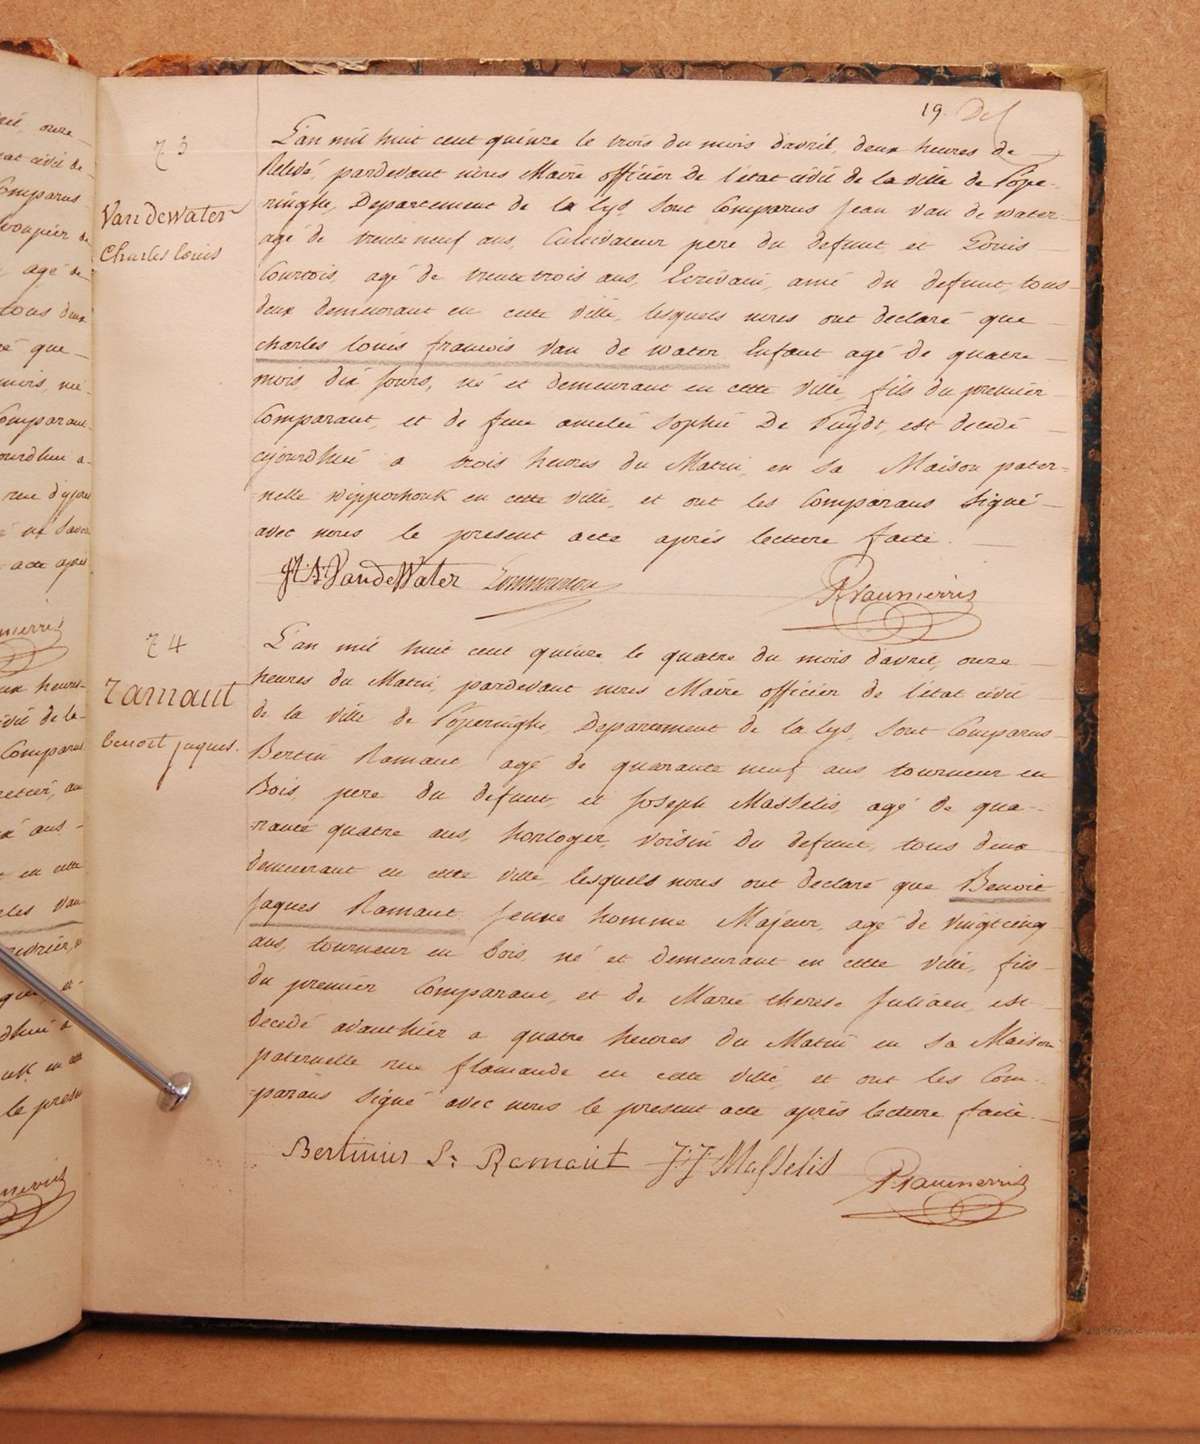 19.
73
Van de Water
Charles Louis
L'an mil huit cent quinze le trois du mois d'avril, deux heures de
Relevé, pardevant nous Maire officier de l'état civil de la ville de Pope-
ringhe, Departement de la Lys sont Comparus Jean Van de Water
agé de trente neuf ans, Cultivateur pere du defunt et Louis
Courtois, agé de trente trois ans, Ecrivain, ami du defunt, tous
deux demeurant en cette ville, lesquels nous ont declaré que
charles louis francois Van de water Enfant agé de quatre
mois dix jours, né et demeurant en cette ville, fils du premier
Comparant, et de feue amelie Sophie De Puydt, est decedé
cejourdhui a trois heures du Matin, en sa Maison pater-
nelle wipporhouk en cette ville, et ont les Comparans Signé
avec nous le present acte après lecture faite.
VandeWater
74
Ramaut
benoit jaques.
L'an mil huit cent quinze le quatre du mois d'avril, onze
heures du Matin, pardevant nous Maire officier de l'état civil
de la ville de Poperinghe, Departement de la Lys, sont Comparus
Bertin Ramaut agé de quarante neuf ans tourneur en
Bois, pere du defunt, et Joseph Masselis, agé de qua-
rante quatre ans, horloger, voisin du defunt, tous deux
demeurant en cette ville, lesquels nous ont declaré que Benoit
Jaques Ramaut jeune homme Majeur, agé de vingt cinq
ans, tourneur en bois, né et demeurant en cette ville, fils
du premier Comparant, et de Marie therese Juliaen, est
decedé avanthier a quatre heures du Matin en sa Maison
paternelle rue flamande en cette ville, et ont les Com-
parans Signé avec nous le present acte après lecture faite.
Bertinus S: Ramaut J:J: Masselis